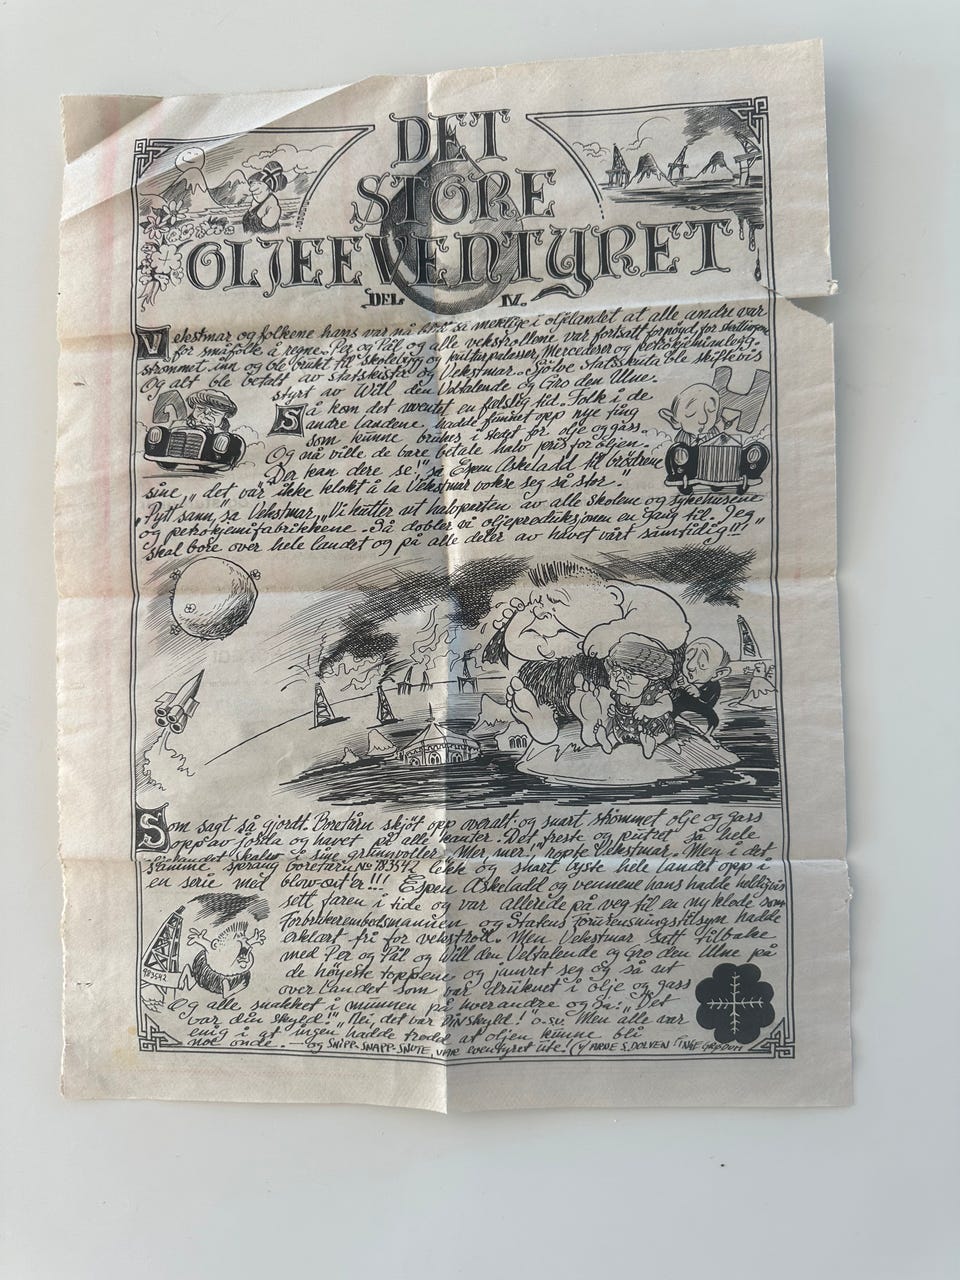 DET
STORE
OLJEEVENTYRET
DEL IV.
Vekstmar og folkene hans var nå blitt så mektige i oljelandet at alle andre var
for småfolk å regne. Per og Pål og alle vekstrollene var fortsatt fornøyd, for skillingene
strømmet inn og ble brukt til skolebygg og kulturpalasser, Mercederer og petrokjemianlegg.
Og alt ble betalt av statskista og Vekstmar. Sjølve Statsskuta ble skiftevis
styrt av Will den Veltalende og Gro den Ulne.
Så kom det uventet en fælslig tid. Folk i de
andre landene hadde funnet opp nye ting
som kunne brukes i stedet for olje og gass.
Og nå ville de bare betale halv pris for oljen.
"Der kan dere se!" sa Espen Askeladd til brødrene
sine, "det var ikke klokt å la Vekstmar vokse seg så stor."
"Pytt sann," sa Vekstmar, "Vi kutter ut halvparten av alle skolene og sykehusene
og petrokjemifabrikkene. Så dobler vi oljeproduksjonen en gang til. Jeg
skal bore over hele landet og på alle deler av havet vårt samtidig!!!"
Som sagt så gjordt. Boretårn skjøt opp overalt og snart strømmet olje og gass
opp av jorda og havet på alle kanter. Det freste og putret så hele
landet skalv i sine grunnvoller. "Mer, mer!" ropte Vekstmar. Men i det
samme sprang boretårn № 983542 lekk og snart lyste hele landet opp i
en serie med blow-out'er!!! Espen Askeladd og vennene hans hadde heldigvis
sett faren i tide og var allerede på veg til en ny klode som
Forbrukerombudsmannen og Statens forurensningstilsyn hadde
erklært fri for vekstroll. Men Vekstmar satt tilbake
med Per og Pål og Will den Veltalende og Gro den Ulne på
de høyeste toppene og jamret seg og så ut
over landet som var druknet i olje og gass
983542
Og alle snakket i munnen på hverandre og sa: "Det
var din skyld!" "Nei, det var DIN skyld!" o.s.v. Men alle var
enig i at ingen hadde trodd at oljen kunne bli
noe onde. — og SNIPP SNAPP SNUTE, VAR eventyret ute! (y ARNE S. DOLVEN INGE GRØDUM